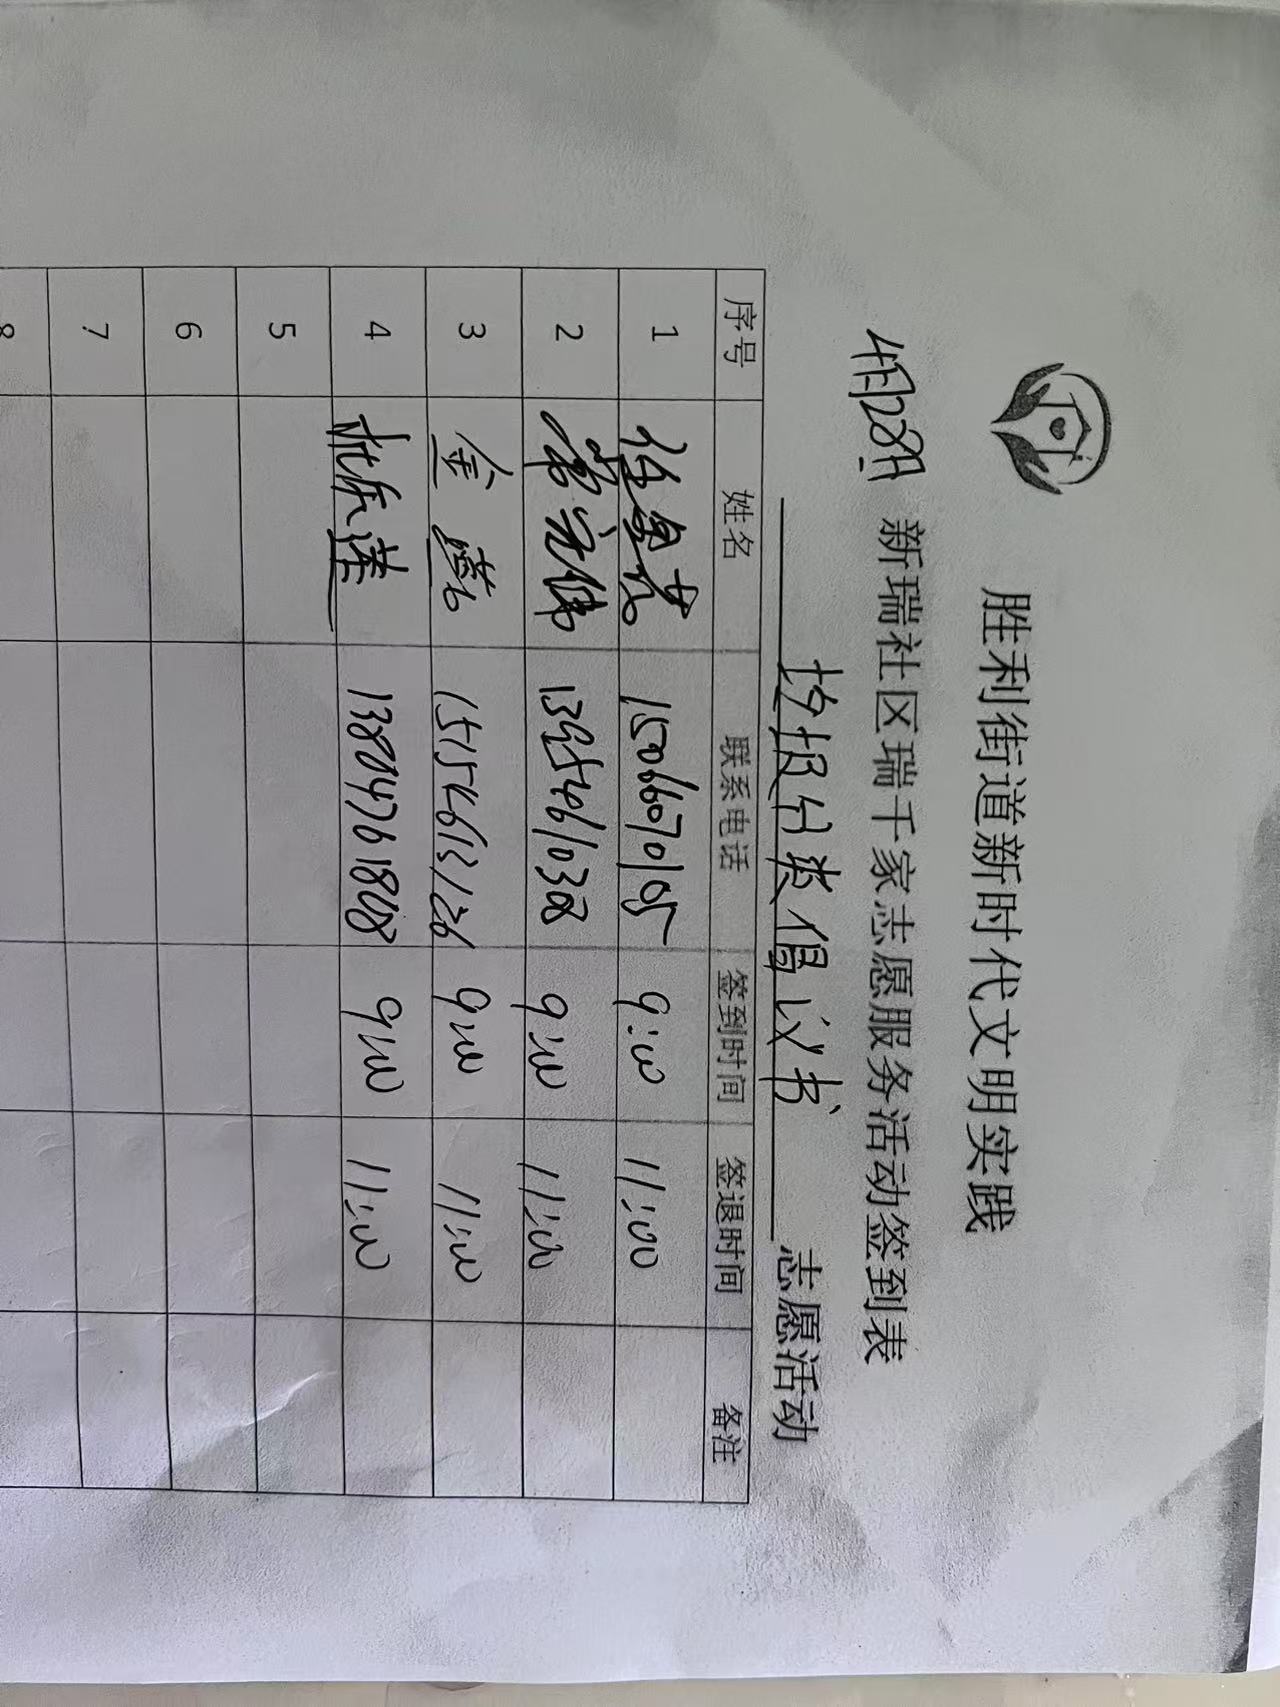 胜利街道新时代文明实践
4月28日 新瑞社区瑞千家志愿服务活动签到表
垃圾分类倡议书 志愿活动
序号 姓名 联系电话 签到时间 签退时间 备注
1 15066070105 9:00 11:00
2 13954610038 9:00 11:00
3 金 15154613126 9:00 11:00
4 杭乐莲 13804761808 9:00 11:00
5
6
7
8